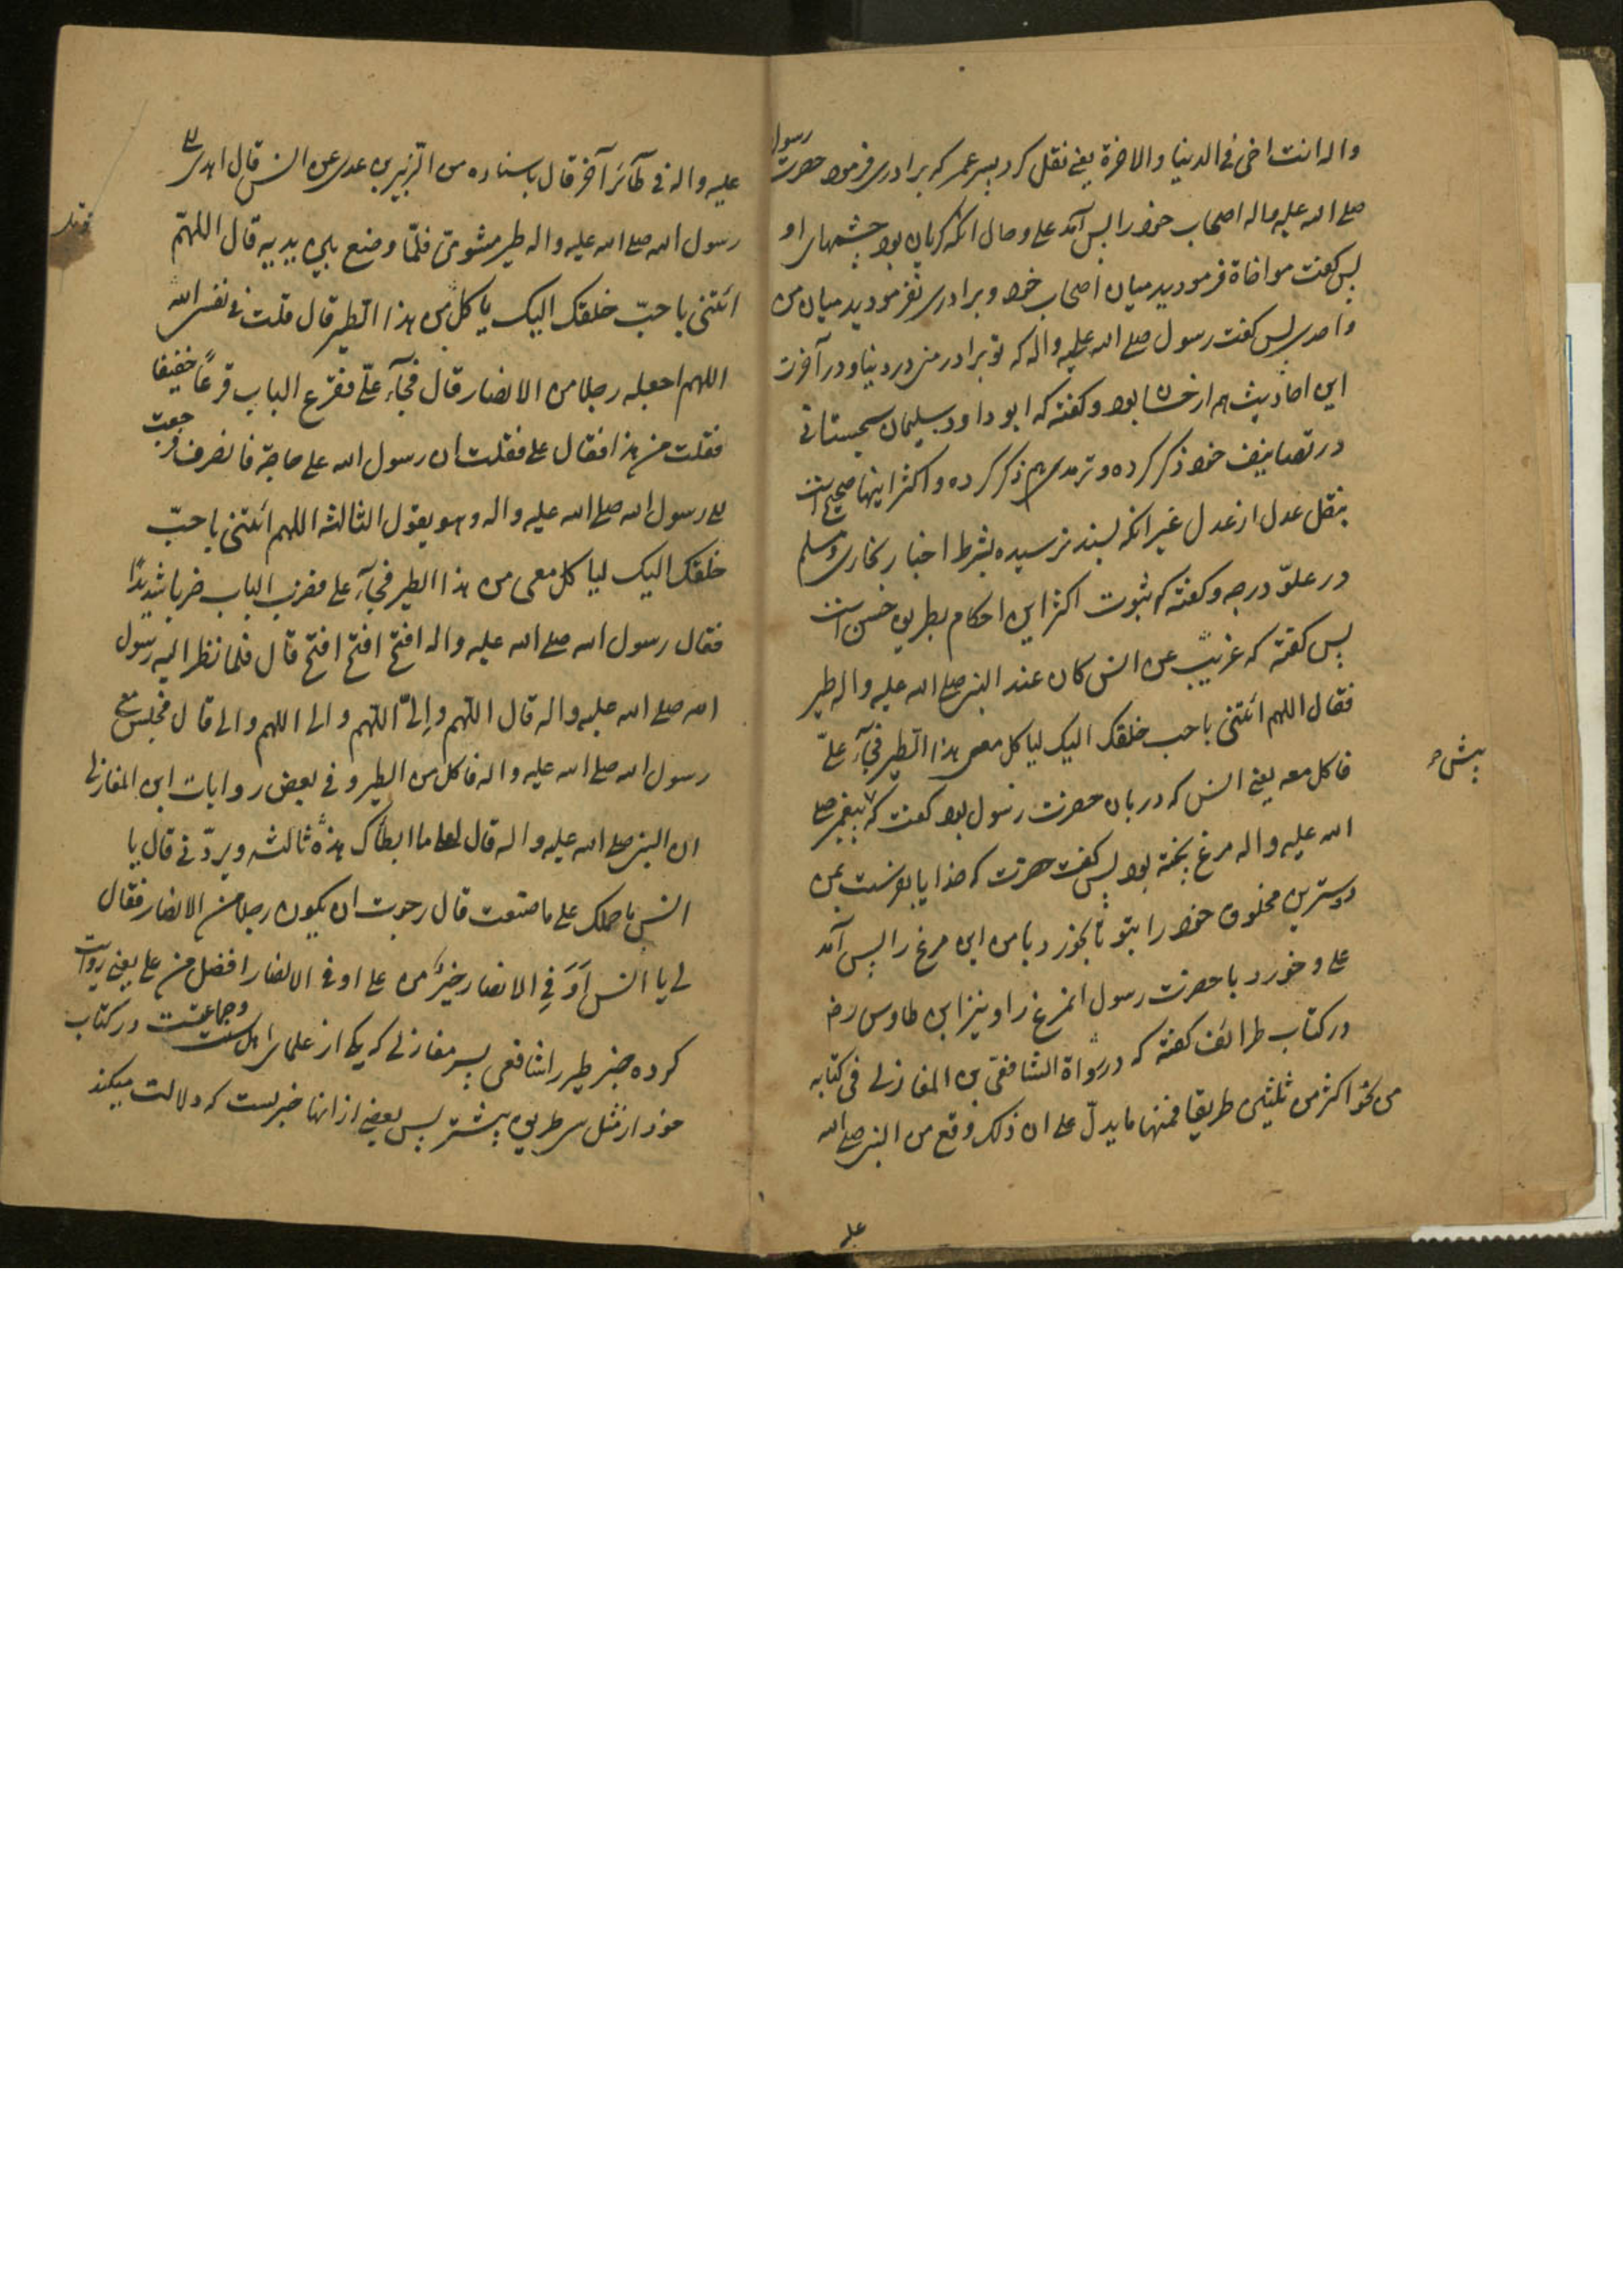 واله انت اخی فی الدنیا والاخرة یعنی نقل کرد پسر عمر که برادری فرمود حضرت رسول
صلی الله علیه واله اصحاب خود را پس آمد علی و حال انکه گریان بود چشمهای او
پس گفت مواخاة فرمودید میان اصحاب خود و برادری نفرمودید میان من
و احدی پس گفت رسول صلی الله علیه واله که تو برادر منی در دنیا و در آخرت
این احادیث هم از حسان بود و گفته که ابو داود سلیمان سجستانی
در تصانیف خود ذکر کرده و ترمدی هم ذکر کرده و اکثر اینها صحیح است
بنقل عدل از عدل غیر انکه بسند نرسیده بشرط اخبار بخاری و مسلم
در علوّ درجه و گفته که ثبوت اکثر این احکام بطریق حسن است
پس گفته که غریب عن انس کان عند النبی صلی الله علیه واله طیر
فقال اللهم ائتنی باحب خلقک الیک لیاکل معی هذا الطیر فجآء علیّ
فاکل معه یعنی انس که دربان حضرت رسول بود گفت که پیش پیغمبر صلی
الله علیه واله مرغ پخته بود پس گفت حضرت که خدایا بفرست بمن
دوسترین مخلوق خود را بتو تا بخورد با من این مرغ را پس آمد
علی و خورد با حضرت رسول انمرغ را و نیز ابن طاوس رض
در کتاب طرائف گفته که و رواة الشافعی بن المغازلی فی کتابه
من نحو اکثر من ثلثین طریقا فمنها ما یدلّ علی ان ذلک وقع من النبی صلی الله
علیه
علیه واله فی طآئر آخر قال باسناده من الزّبیر بن عدی عن انس قال اهدی الی
رسول الله صلی الله علیه واله طیر مشویّ فلمّا وضع بین یدیه قال اللهمّ
ائتنی باحبّ خلقک الیک یاکل من هذا الطیر قال قلت فی نفسی
اللهم اجعله رجلا من الانصار قال فجآء علیّ فقرع الباب قرعاً خفیفا
فقلت من هذا فقال علی فقلت ان رسول الله علی حاجة فانصرف فرجعت
الی رسول الله صلی الله علیه واله وهو یقول الثالثه اللهم ائتنی باحبّ
خلقک الیک لیاکل معی من هذا الطیر فجآء علی فضرب الباب ضربا شدیدًا
فقال رسول الله صلی الله علیه واله افتح افتح افتح قال فلما نظر الیه رسول
الله صلی الله علیه واله قال اللهم و الیّ اللهم و الی اللهم و الی قال فجلس مع
رسول الله صلی الله علیه واله فاکل من الطیر و فی بعض روایات ابن المغازلی
ان النبی صلی الله علیه واله قال لعلی ما ابطأک هذه ثالثه ویردّنی قال یا
انس ما حملک علی ما صنعت قال رجوت ان یکون رجلا من الانصار فقال
لی یا انس اَوَ فِی الانصار خیرٌ من علی او فی الانصار افضل من علی یعنی روایت
کرده خبر طیر را شافعی پسر مغازلی که یکی از علمای اهل سنت و جماعتست در کتاب
خود از مثل سی طریق بیشتر پس بعضی از انها خبریست که دلالت میکند